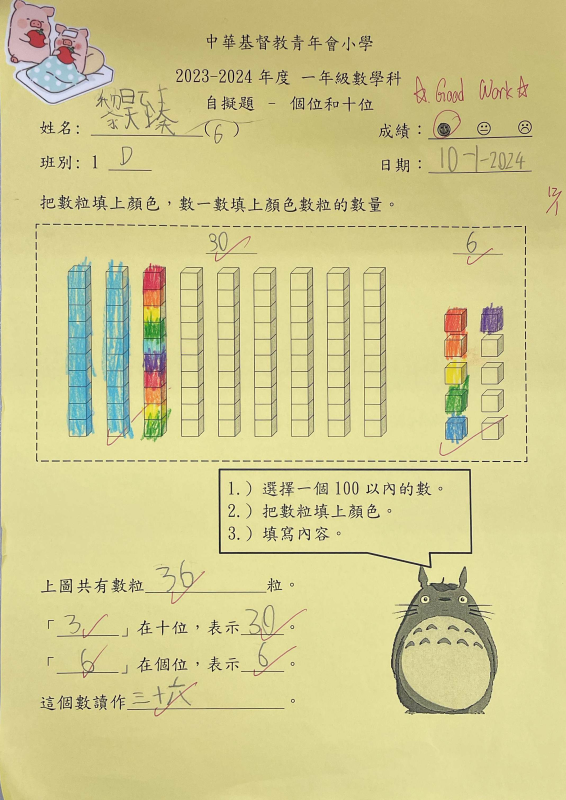 中華基督教青年會小學
2023-2024 年度 一年級數學科
☆ Good Work ☆
自擬題 - 個位和十位
姓名: 黎昊臻 (6) 成績:
班別: 1 D 日期: 10-1-2024
12/1
把數粒填上顏色,數一數填上顏色數粒的數量。
30 6
1.) 選擇一個100以內的數。
2.) 把數粒填上顏色。
3.) 填寫內容。
上圖共有數粒 36 粒。
「 3 」在十位,表示 30 。
「 6 」在個位,表示 6 。
這個數讀作 三十六 。